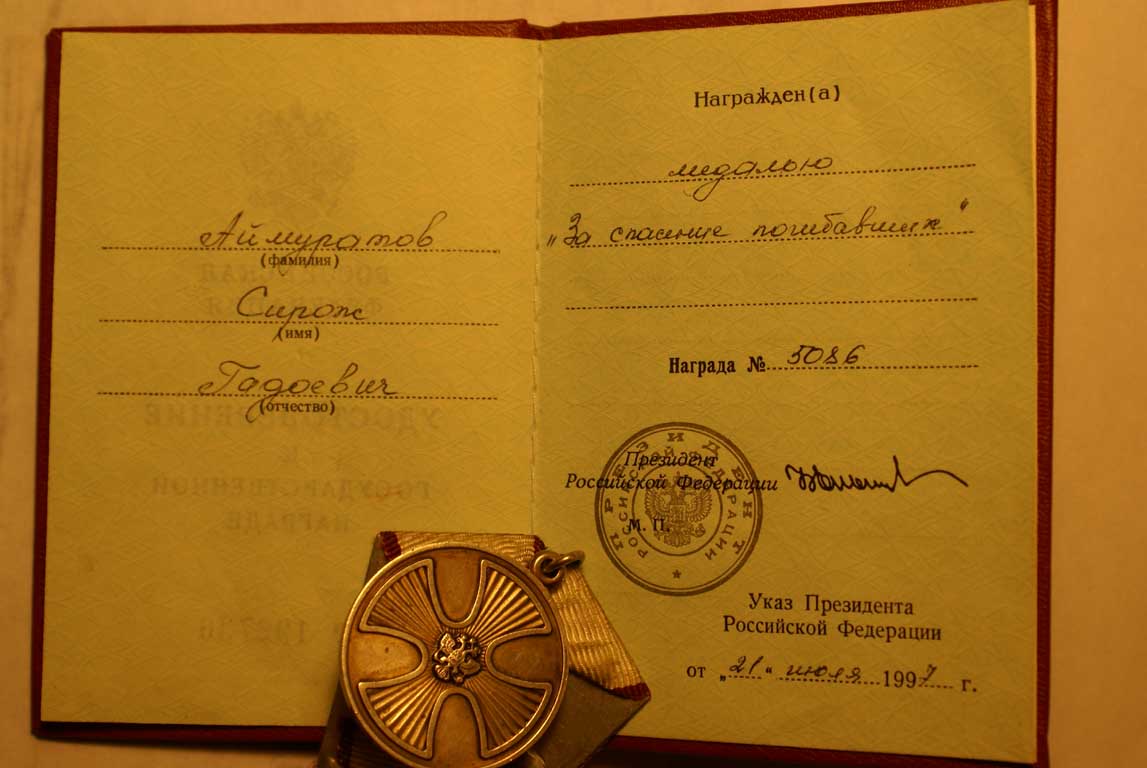 Аймуратов
(фамилия)
Сирож
(имя)
Гадоевич
(отчество)
Награжден(а)
медалью
„За спасение погибавших“
Награда № 5086
Президент
Российской Федерации
М. П.
ПРЕЗИДЕНТ
РОССИЙСКОЙ ФЕДЕРАЦИИ
Указ Президента
Российской Федерации
от „21“ июля 1997 г.